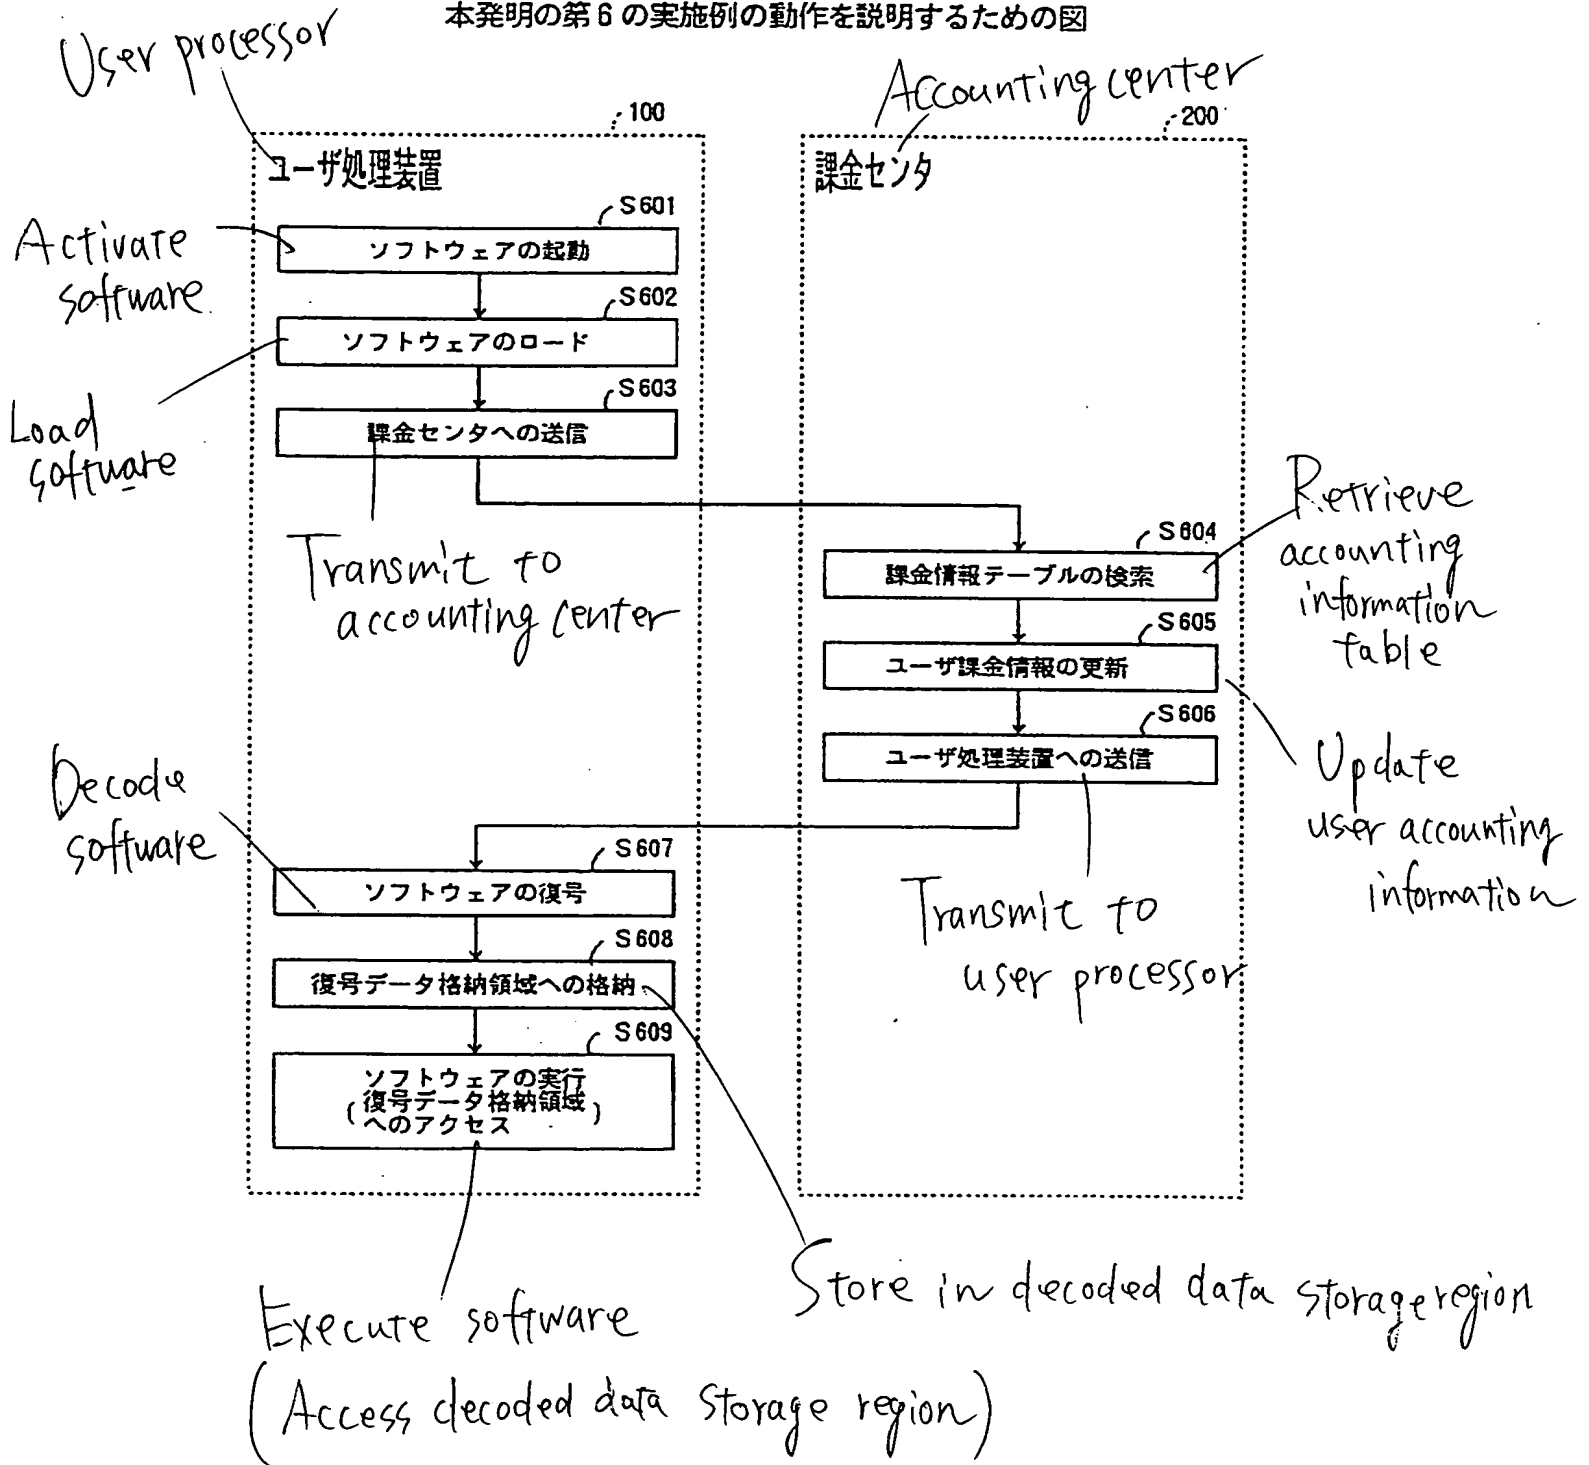 本発明の第6の実施例の動作を説明するための図
User processor
Accounting center
100
200
ユーザ処理装置
課金センタ
S601
Activate
software
ソフトウェアの起動
S602
ソフトウェアのロード
Load
software
S603
課金センタへの送信
Transmit to
accounting center
S604
課金情報テーブルの検索
Retrieve
accounting
information
table
S605
ユーザ課金情報の更新
Update
user accounting
information
S606
ユーザ処理装置への送信
Transmit to
user processor
Decode
software
S607
ソフトウェアの復号
S608
復号データ格納領域への格納
S609
ソフトウェアの実行
(復号データ格納領域)
へのアクセス
Store in decoded data storage region
Execute software
(Access decoded data storage region)